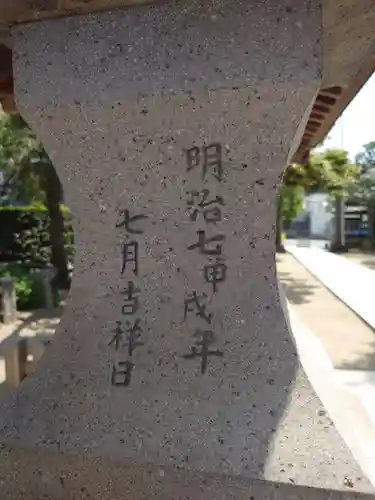 明治七甲戌年
七月吉祥日